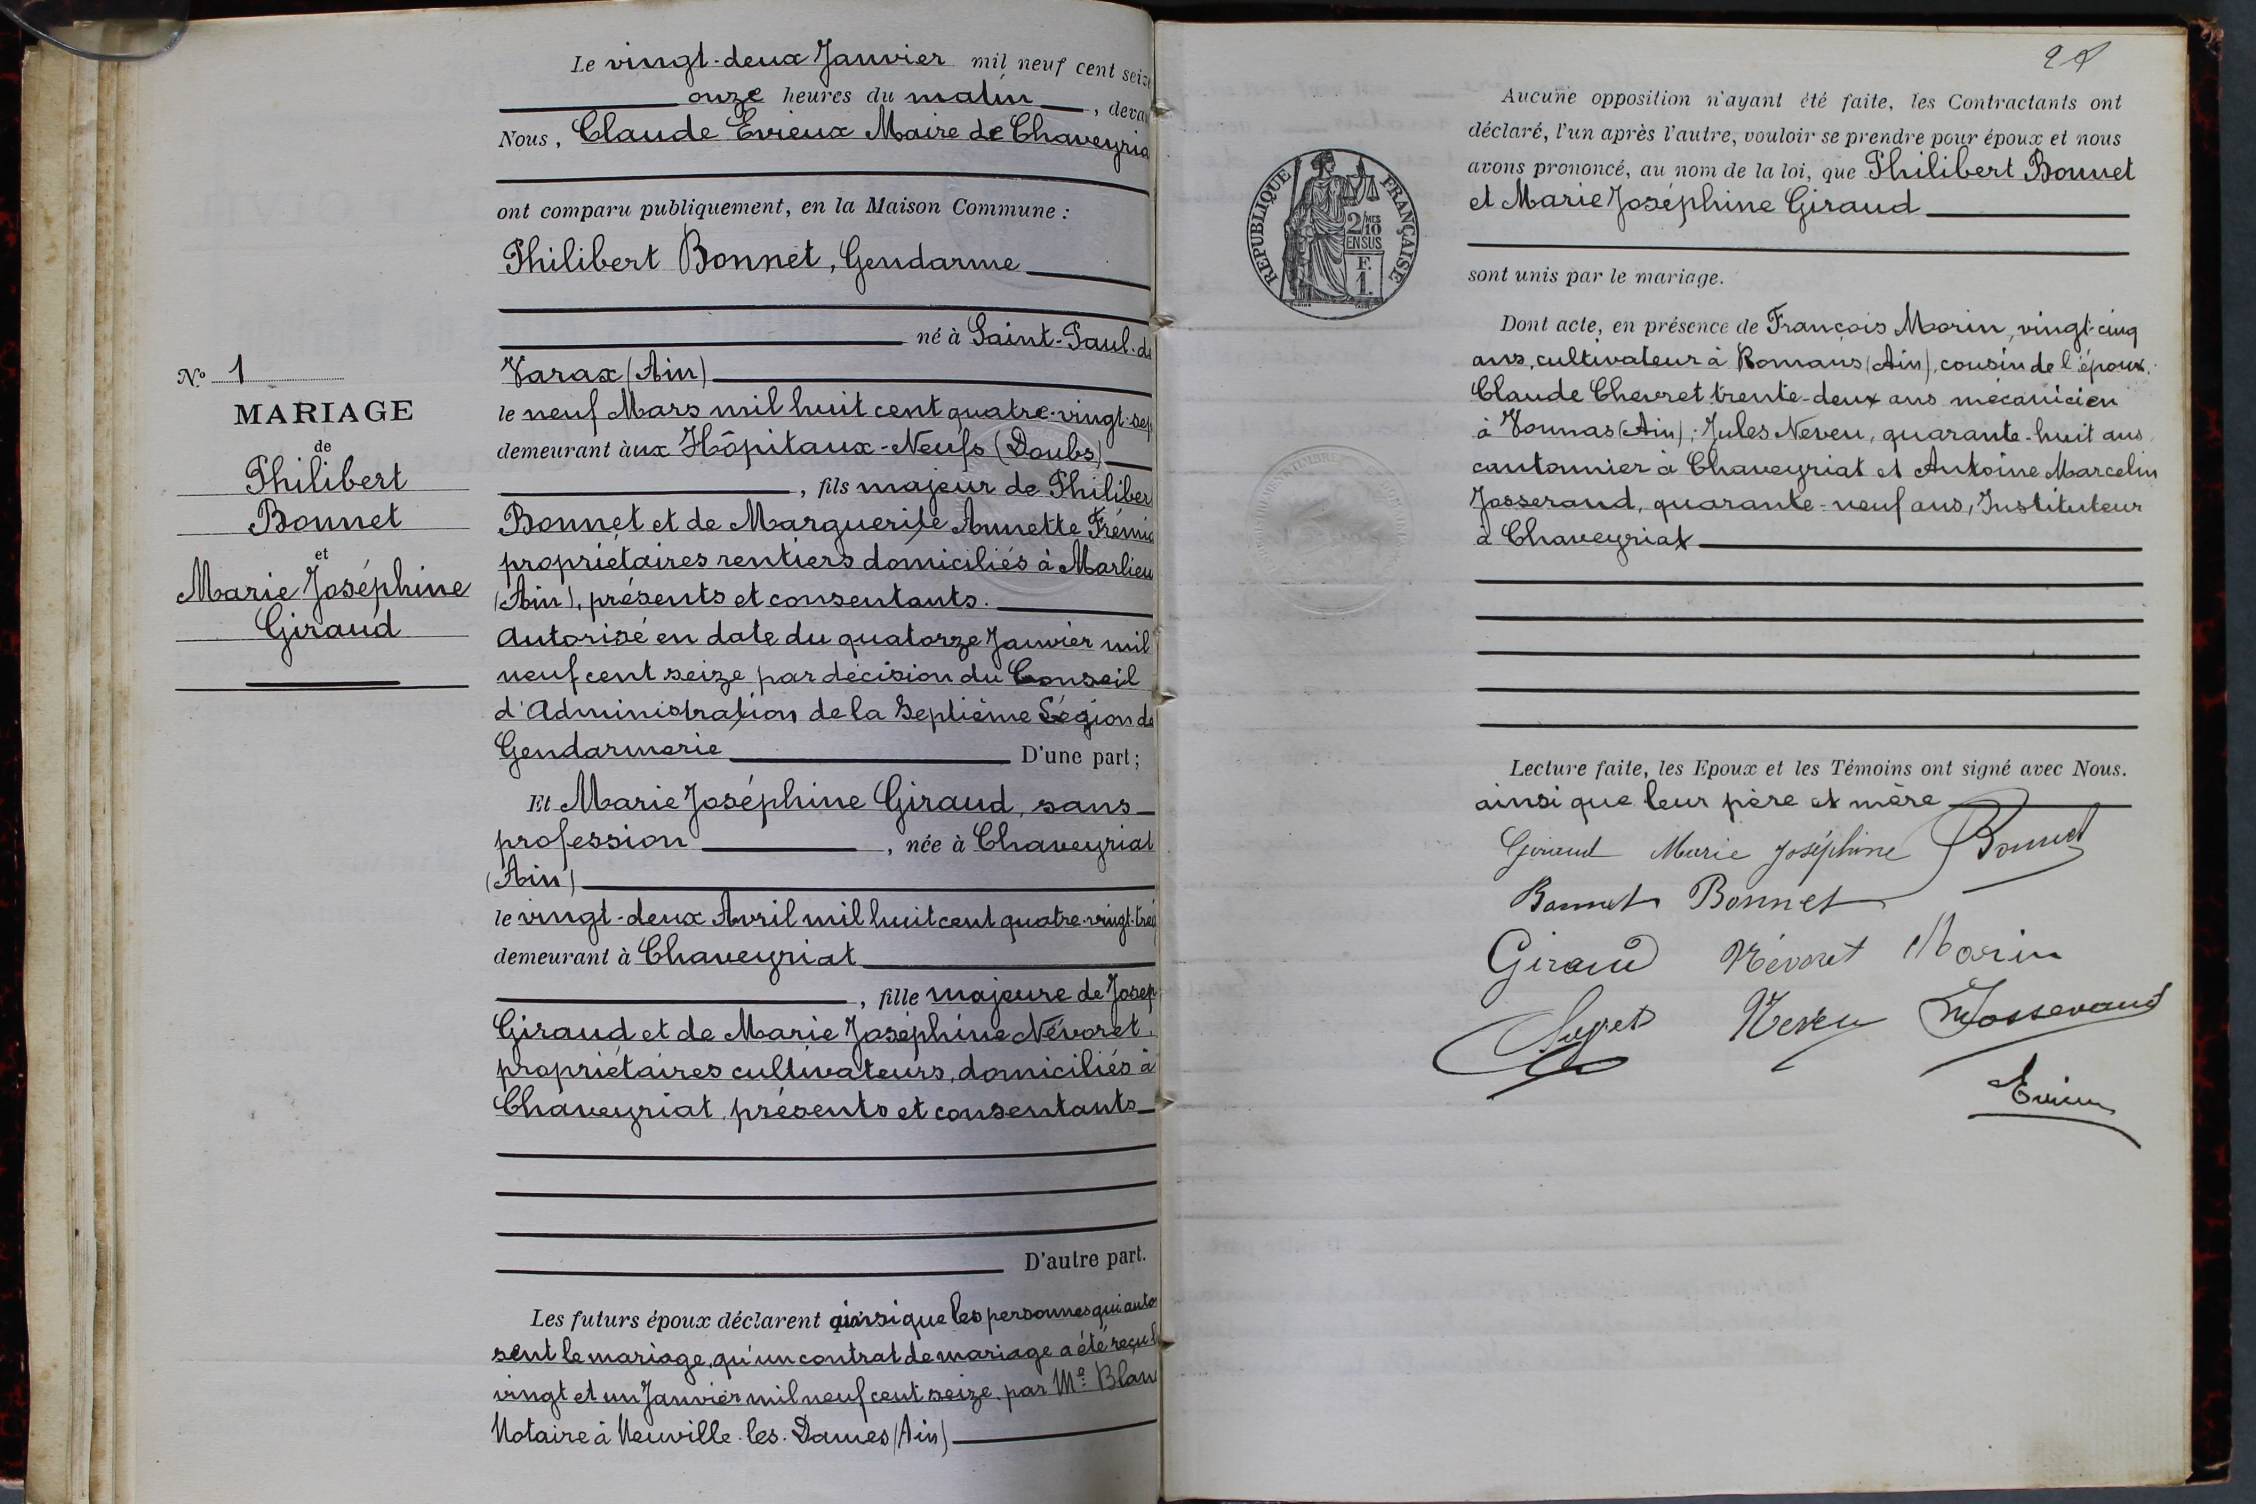 Le vingt-deux Janvier mil neuf cent seize
onze heures du matin, deva
Nous, Claude Evieux Maire de Chaveyria
ont comparu publiquement, en la Maison Commune :
Philibert Bonnet, Gendarme
né à Saint-Paul-de
Varax (Ain)
le neuf Mars mil huit cent quatre-vingt-sep
demeurant àux Hôpitaux-Neufs (Doubs)
, fils majeur de Philiber
Bonnet et de Marguerite Annette Frémio
propriétaires rentiers domiciliés à Marlieu
(Ain), présents et consentants.
Autorisé en date du quatorze Janvier mil
neuf cent seize par décision du Conseil
d'Administration de la Septième Légion de
Gendarmerie D'une part ;
Et Marie Joséphine Giraud, sans
profession, née à Chaveyriat
(Ain)
le vingt-deux Avril mil huit cent quatre-vingt-trei
demeurant à Chaveyriat
, fille majeure de Josep
Giraud et de Marie Joséphine Névoret,
propriétaires cultivateurs, domiciliés à
Chaveyriat, présents et consentants
D'autre part.
Les futurs époux déclarent ainsi que les personnes qui auto
sent le mariage, qu'un contrat de mariage a été reçu l
vingt et un Janvier mil neuf cent seize par Me Blan
Notaire à Neuville-les-Dames (Ain)
N° 1
MARIAGE
de
Philibert
Bonnet
et
Marie Joséphine
Giraud
Aucune opposition n'ayant été faite, les Contractants ont
déclaré, l'un après l'autre, vouloir se prendre pour époux et nous
avons prononcé, au nom de la loi, que Philibert Bonnet
et Marie Joséphine Giraud
sont unis par le mariage.
RÉPUBLIQUE FRANÇAISE
2/10
EN SUS
F.
1.
Dont acte, en présence de François Morin, vingt-cinq
ans, cultivateur à Romans (Ain), cousin de l'époux.
Claude Chevret trente-deux ans mécanicien
à Vonnas (Ain) ; Jules Neveu, quarante-huit ans
cantonnier à Chaveyriat et Antoine Marcelin
Josserand, quarante-neuf ans, Instituteur
à Chaveyriat
Lecture faite, les Epoux et les Témoins ont signé avec Nous.
ainsi que leur père et mère
Giraud Marie Joséphine Bonnet
Bonnet Bonnet
Giraud Névoret Morin
Neveu Josserand
Evieux